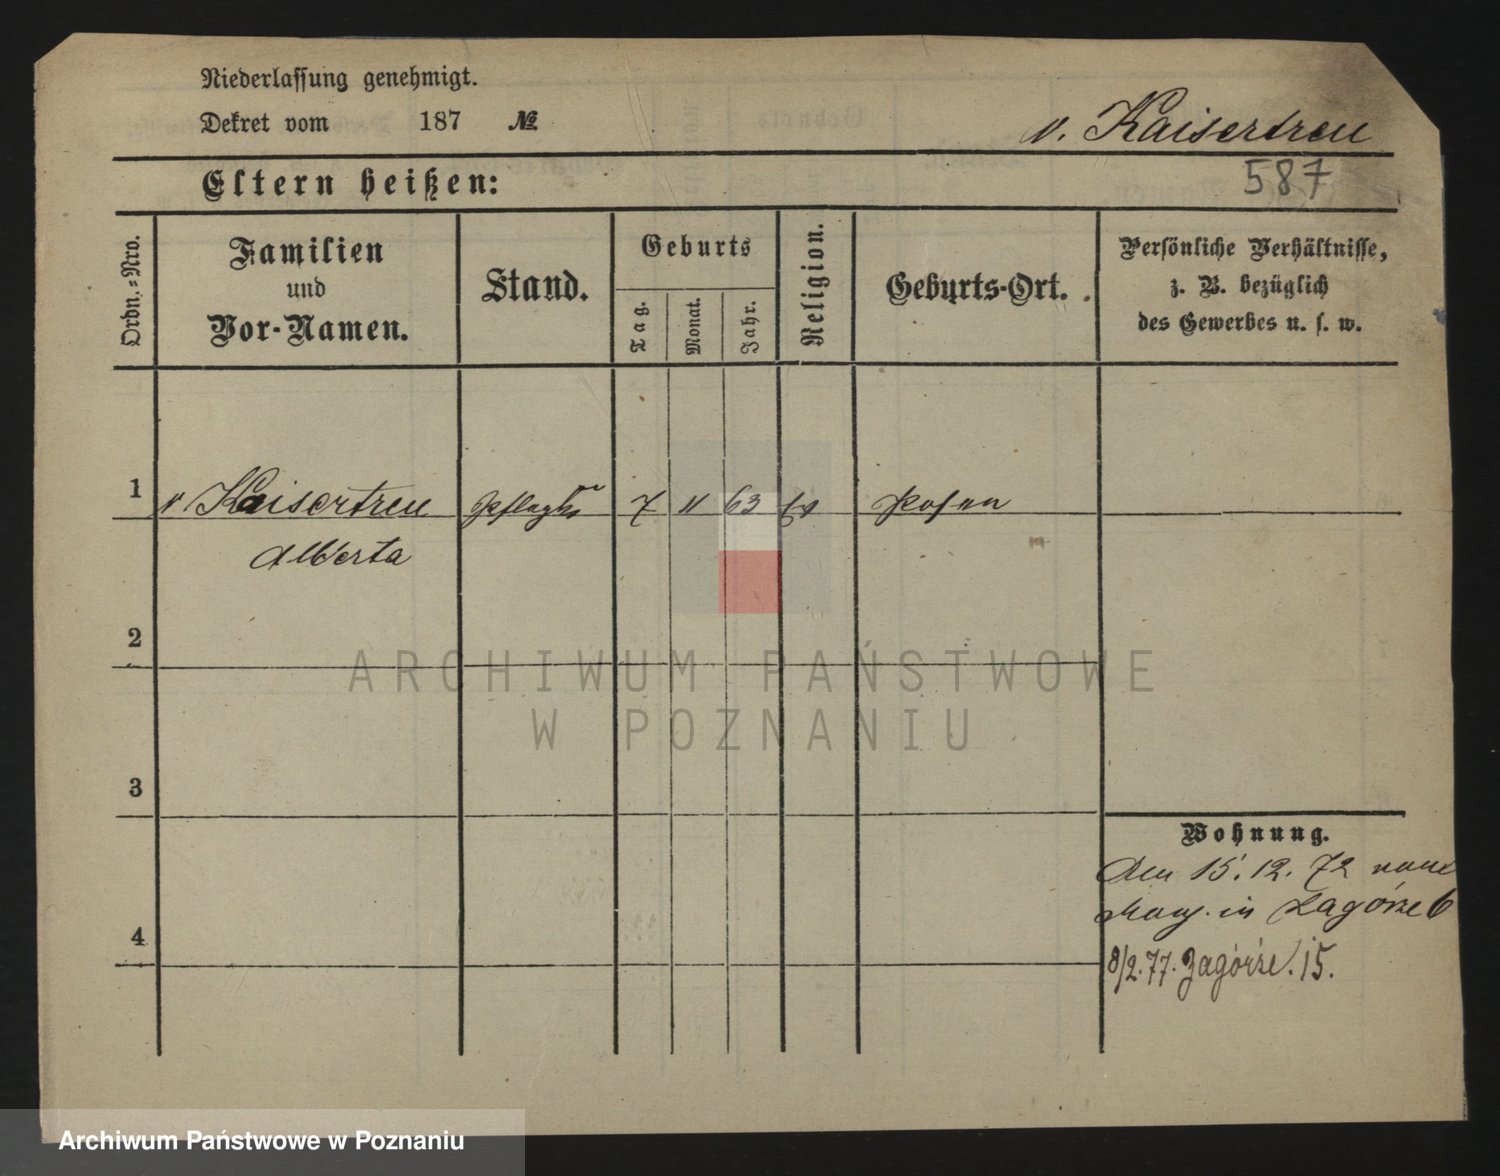 Niederlassung genehmigt.
Dekret vom 187 №
v. Kaisertreu
587
Eltern heißen:
Ordn.-Nro.
Familien
und
Vor-Namen.
Stand.
Geburts
Tag.
Monat.
Jahr.
Religion.
Geburts-Ort.
Persönliche Verhältnisse,
z. B. bezüglich
des Gewerbes u. s. w.
1 v Kaisertreu 7 11 63 Ev Posen
Alberta
2
3
4
Wohnung.
Den 15. 12. 72
in Zagórze 6
8/2.77. Zagórze. 15.
ARCHIWUM PAŃSTWOWE
W POZNANIU
Archiwum Państwowe w Poznaniu